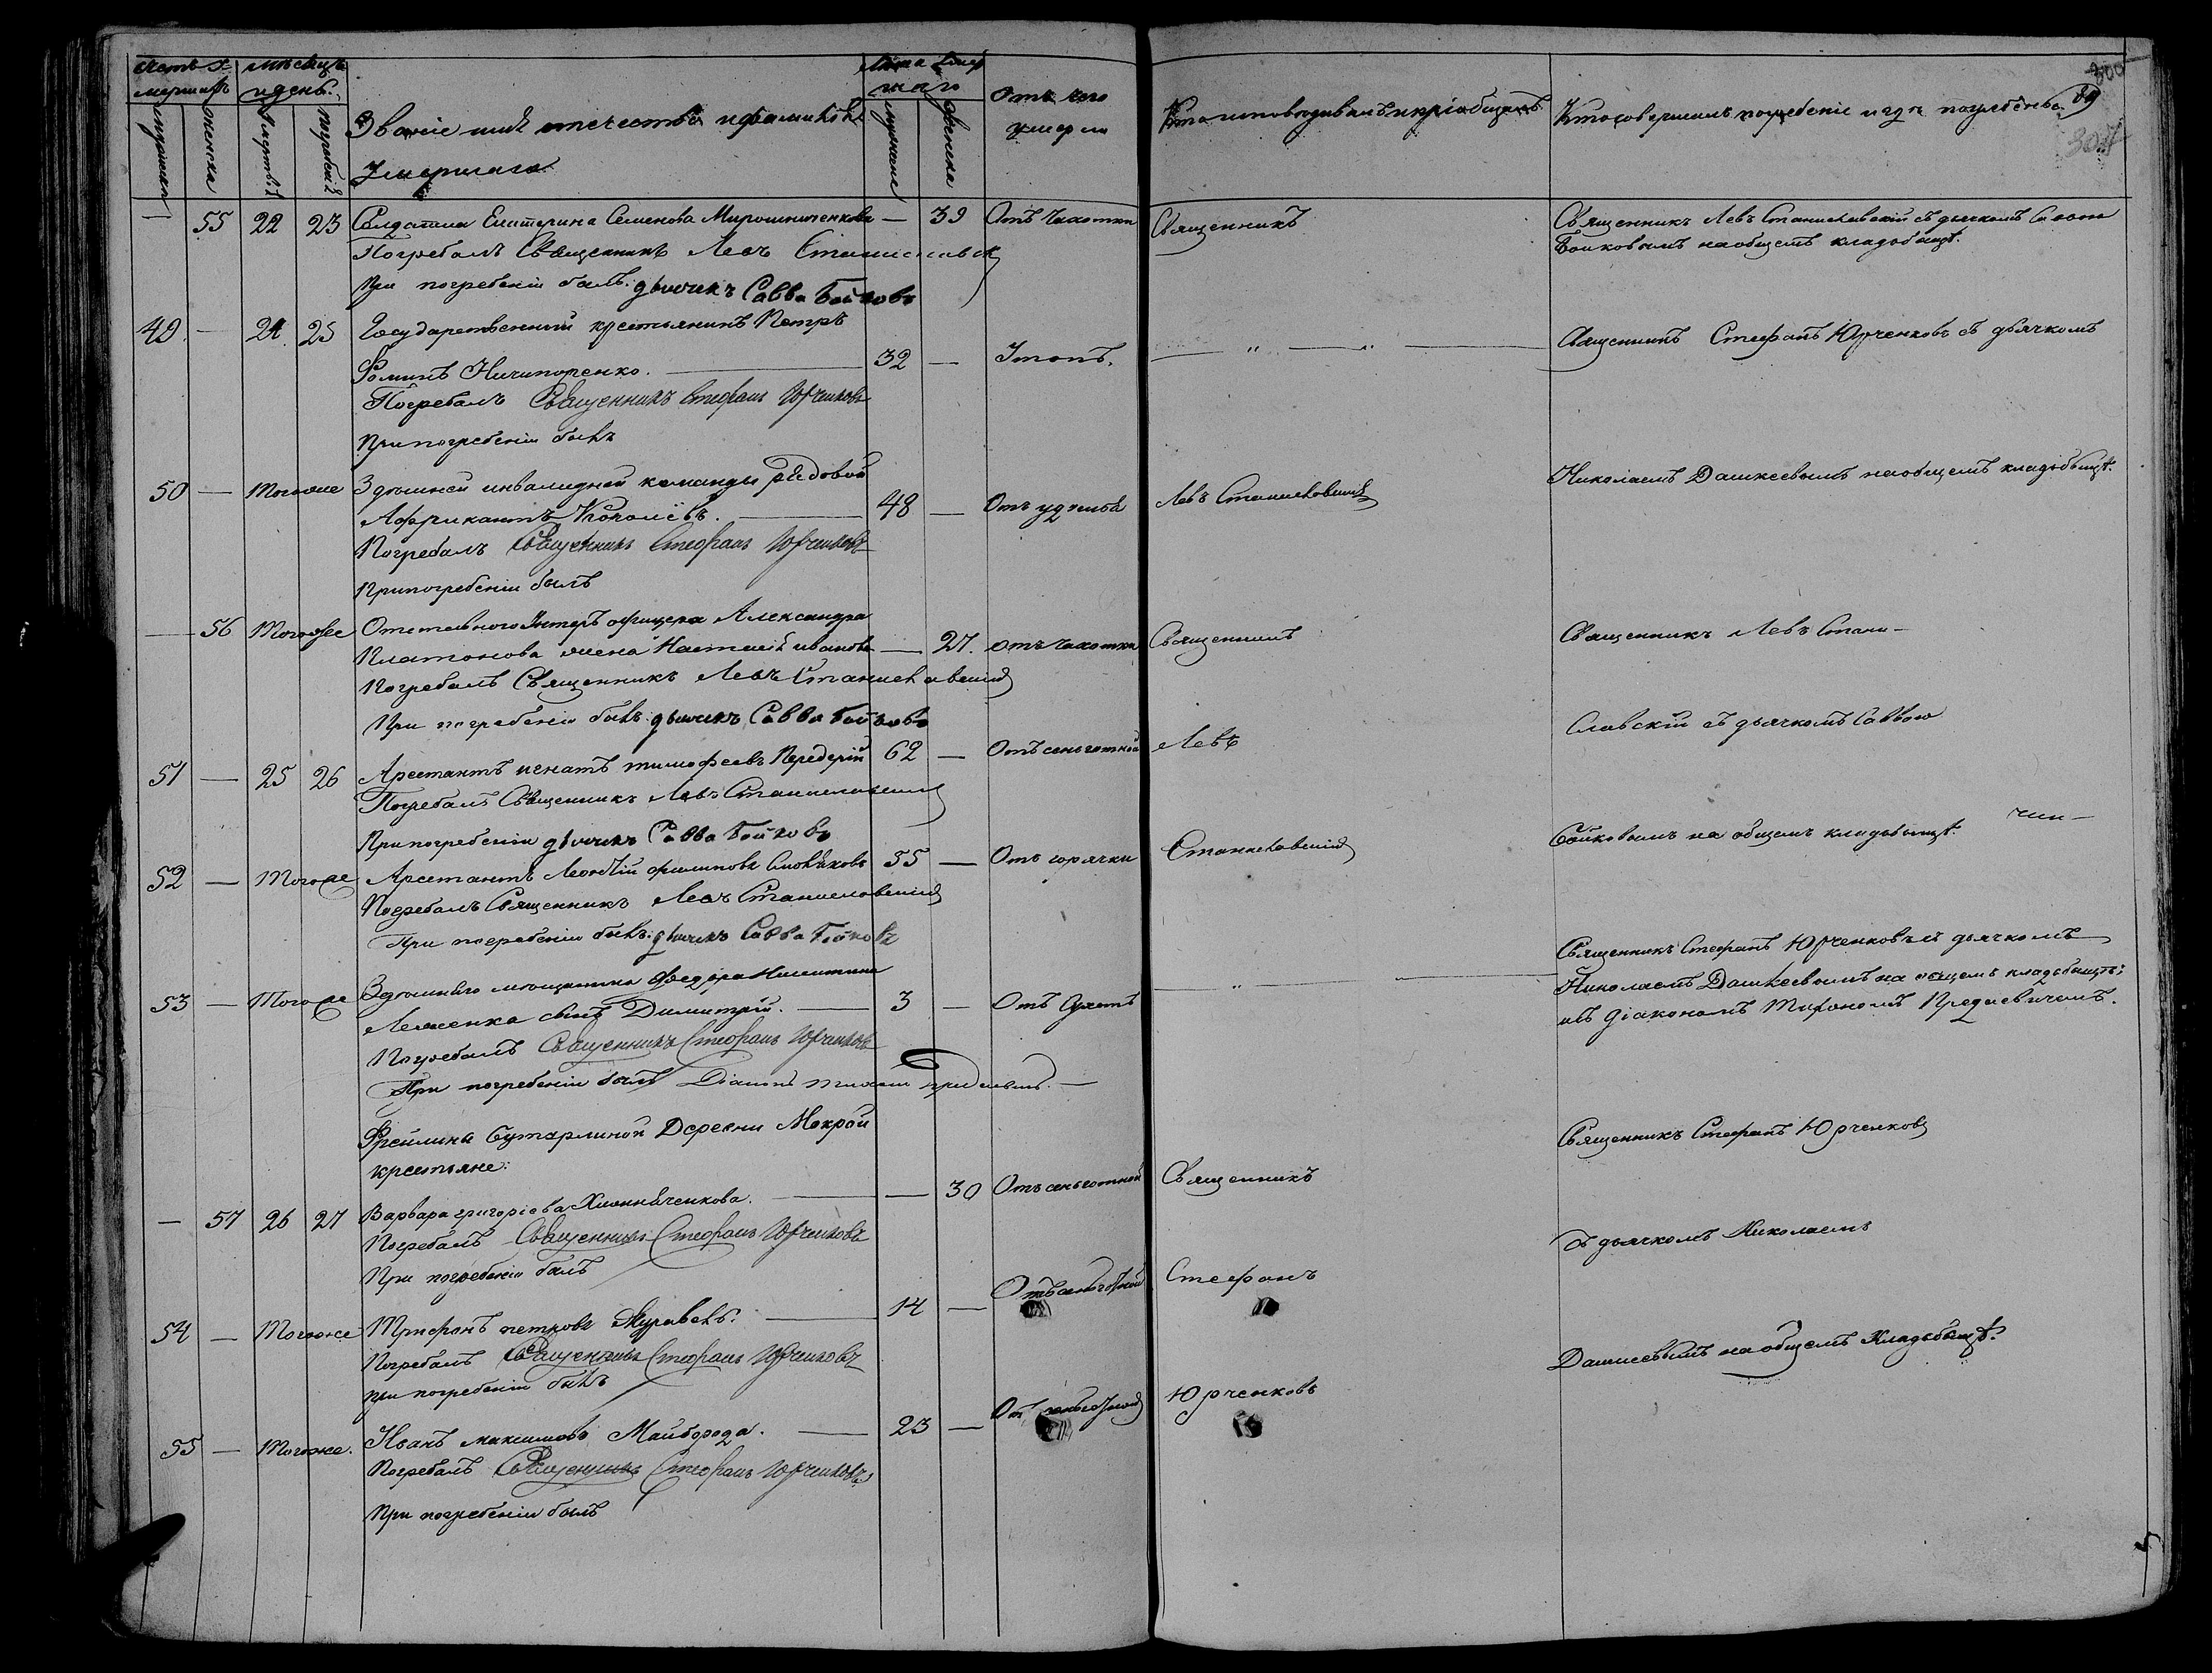 Счетъ умершихъ
мѣсяцъ и день.
Званіе имя отечество и фамилія
Умершаго
Лѣта умершаго
Отъ чего умерли
Кто исповѣдывалъ и пріобщалъ
Кто совершалъ погребеніе и гдѣ погребены
300
89
307
мужеска женска смерти погребенія мужеска женска
— 55 22 23 Солдатка Екатерина Семенова Мирошниченкова — 39 Отъ чахотки Священникъ Священникъ Левъ Станиславскій съ дьячкомъ Саввою
Погребалъ Священникъ Левъ Станиславскій Бойковымъ на общемъ кладбищѣ.
При погребеніи былъ: дьячекъ Савва Бойковъ
49. — 24. 25 Государственный крестьянинъ Петръ
Фоминъ Ничипоренко. 32 — Утопъ. — " — " — Священникъ Стефанъ Юрченковъ съ дьячкомъ
Погребалъ Священникъ Стефанъ Юрченковъ
При погребеніи былъ
50 — Тогоже Здѣшней инвалидной команды рядовой Николаемъ Дашкеевымъ на общемъ кладбищѣ.
Африкантъ 48 — Отъ Левъ Станиславскій
Погребалъ Священникъ Стефанъ Юрченковъ
При погребеніи былъ
— 56 Тогоже Отставного унтеръ офицера Александра
Платонова жена Настасія иванова — 27. отъ чахотки Священникъ Священникъ Левъ Стани-
Погребалъ Священникъ Левъ Станиславскій
При погребеніи былъ: дьячекъ Савва Бойковъ славскій съ дьячкомъ Саввою
51 — 25 26 Арестантъ игнатъ тимофеевъ Передерій 62 — Отъ Левъ
Погребалъ Священникъ Левъ Станиславскій
При погребеніи дьячекъ Савва Бойковъ Бойковымъ на общемъ кладбищѣ.
52 — Тогоже Арестантъ Леонтій филиповъ 35 — Отъ горячки Станиславскій
Погребалъ Священникъ Левъ Станиславскій
При погребеніи былъ: дьячекъ Савва Бойковъ
Священникъ Стефанъ Юрченковъ съ дьячкомъ
53 — Тогоже Здѣшняго мѣщанина Федора Никитина Николаемъ Дашкеевымъ на общемъ кладбищѣ;
сынъ Димитрій. 3 — Отъ — " — и съ діакономъ
Погребалъ Священникъ Стефанъ Юрченковъ
При погребеніи былъ Діаконъ
Деревни Мокрой
крестьяне: Священникъ Стефанъ Юрченковъ
— 57 26 27 Варвара григоріева — 30 Отъ Священникъ
Погребалъ Священникъ Стефанъ Юрченковъ съ дьячкомъ Николаемъ
При погребеніи былъ
54 — Тогоже Трифонъ петровъ Журавель. 14 — Отъ Стефанъ
Погребалъ Священникъ Стефанъ Юрченковъ Дашкеевымъ на общемъ Кладбищѣ.
при погребеніи былъ
55 — Тогоже. Иванъ максимовъ Майборода. 23 — Отъ Юрченковъ
Погребалъ Священникъ Стефанъ Юрченковъ
При погребеніи былъ